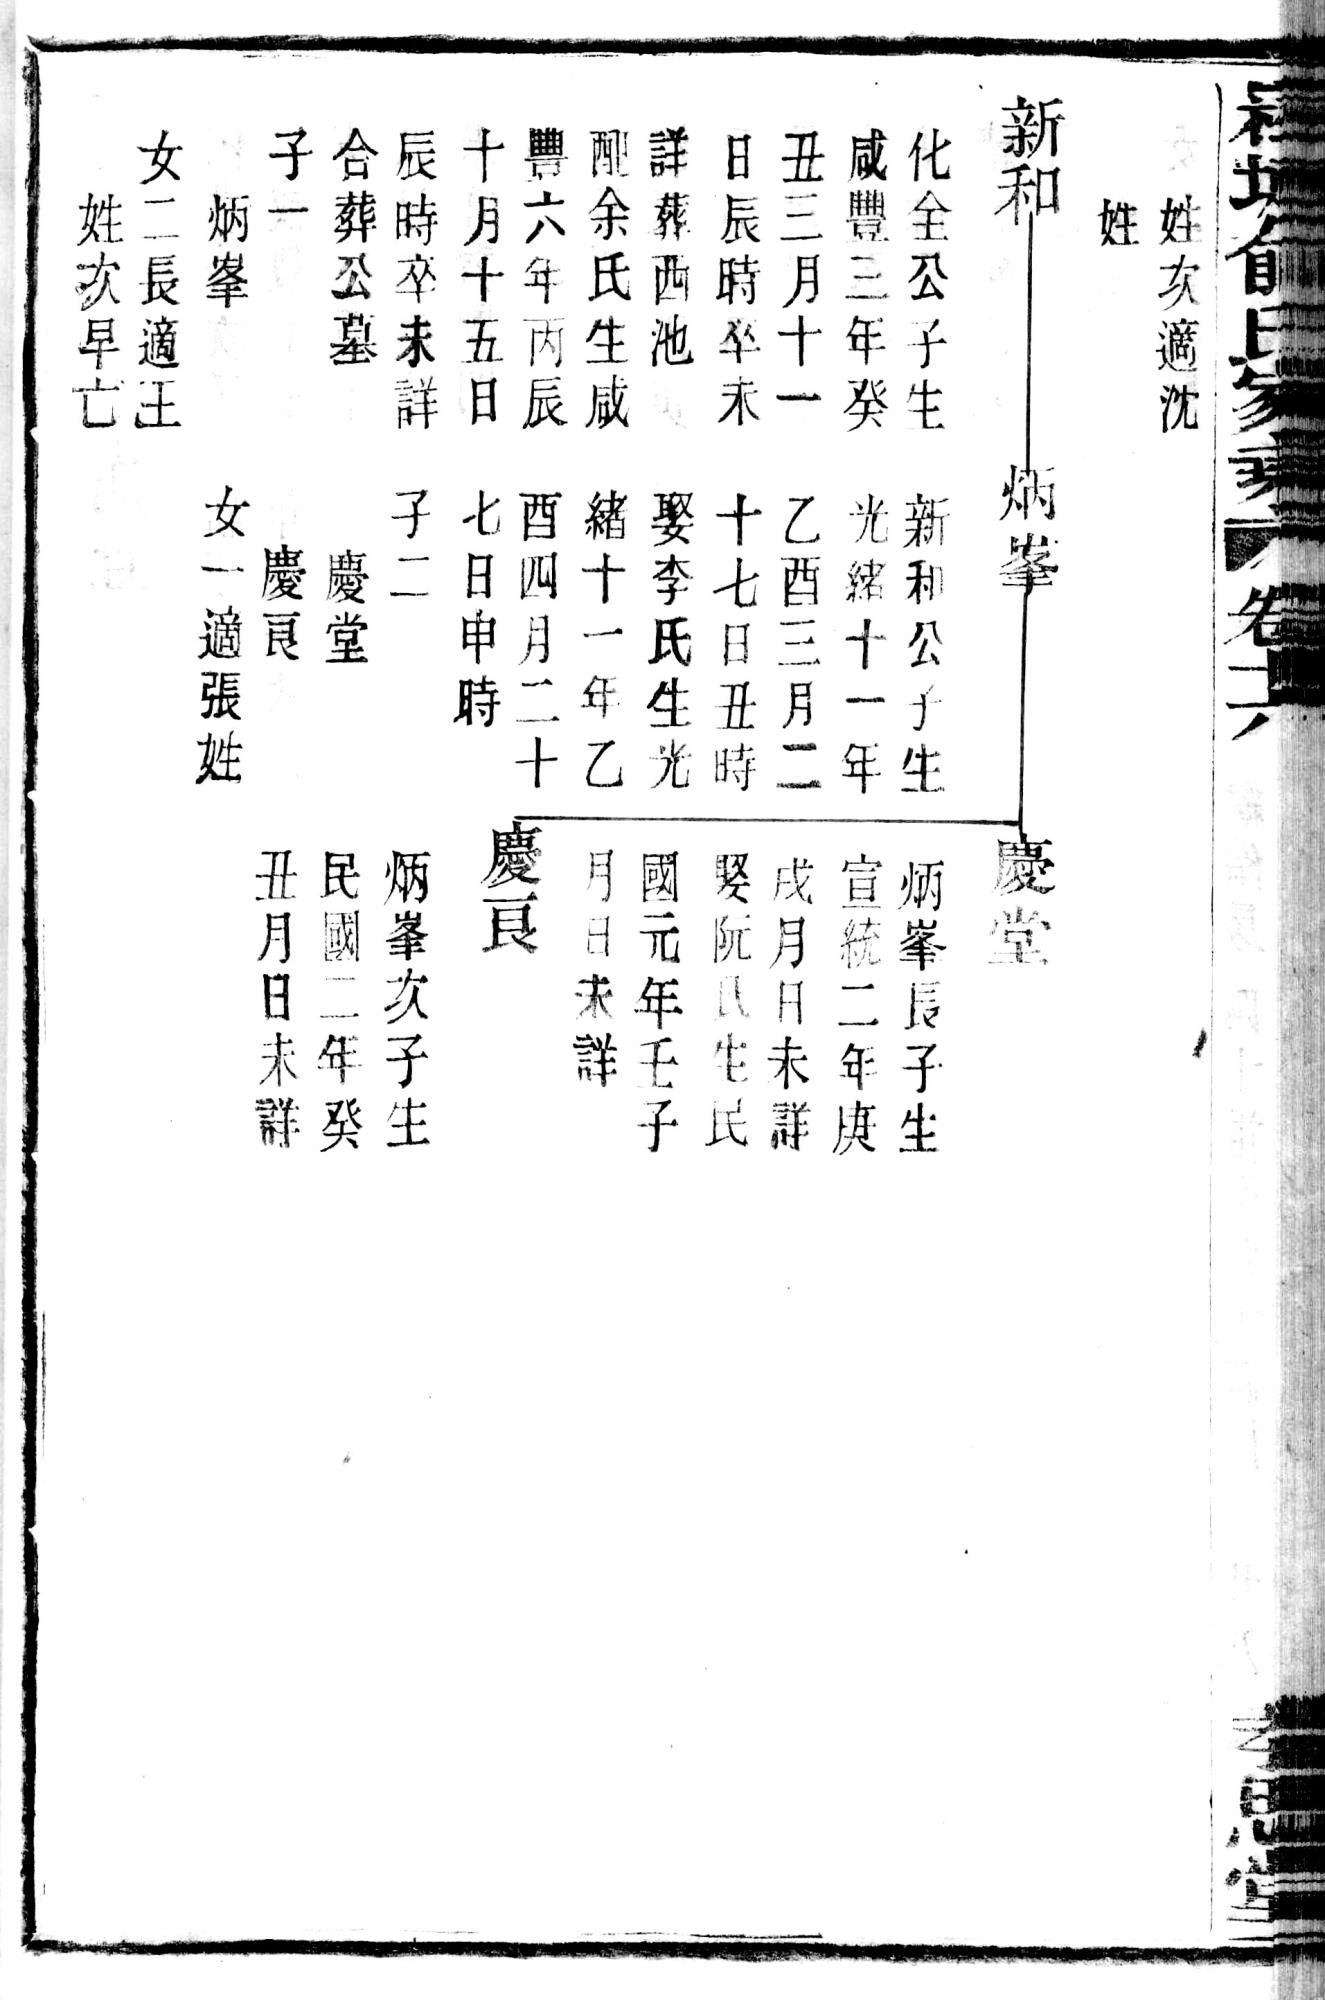 俞氏家乘
卷六
孝思堂
姓次適沈
姓
新和
化全公子生
咸豐三年癸
丑三月十一
日辰時卒未
詳葬西池
配余氏生咸
豐六年丙辰
十月十五日
辰時卒未詳
合葬公墓
子一
炳峯
女二長適王
姓次早亡
炳峯
新和公子生
光緒十一年
乙酉三月二
十七日丑時
娶李氏生光
緒十一年乙
酉四月二十
七日申時
子二
慶堂
慶良
女一適張姓
慶堂
炳峯長子生
宣統二年庚
戌月日未詳
娶阮氏生民
國元年壬子
月日未詳
慶良
炳峯次子生
民國二年癸
丑月日未詳